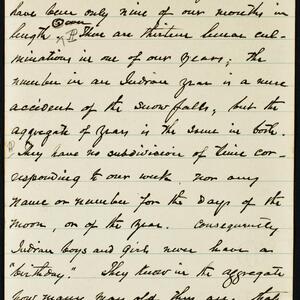 have been only nine of our months in
length. There are thirteen lunar cul-
minations in one of our years; the
number in an Indian year is a mere
accident of the snow falls; but the
aggregate of years is the same in both.
They have no subdivision of time cor-
responding to our week, nor any
name or number for the days of the
moon, or of the year. Consequently
Indian boys and girls never have a
"birthday." They know in the aggregate
how many years old they are, that